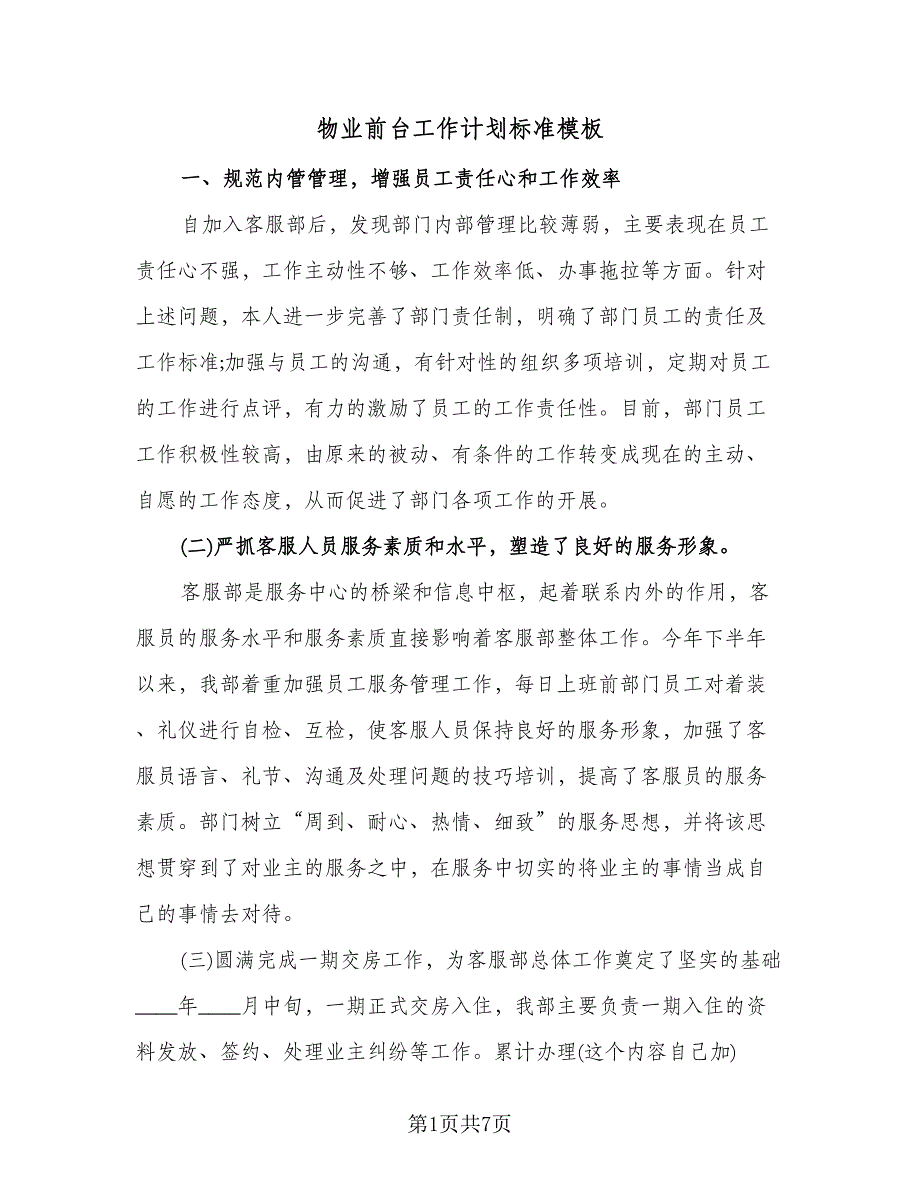 物业前台工作计划标准模板
一、规范内管管理，增强员工责任心和工作效率
自加入客服部后，发现部门内部管理比较薄弱，主要表现在员工
责任心不强，工作主动性不够、工作效率低、办事拖拉等方面。针对
上述问题，本人进一步完善了部门责任制，明确了部门员工的责任及
工作标准;加强与员工的沟通，有针对性的组织多项培训，定期对员工
的工作进行点评，有力的激励了员工的工作责任性。目前，部门员工
工作积极性较高，由原来的被动、有条件的工作转变成现在的主动、
自愿的工作态度，从而促进了部门各项工作的开展。
(二)严抓客服人员服务素质和水平，塑造了良好的服务形象。
客服部是服务中心的桥梁和信息中枢，起着联系内外的作用，客
服员的服务水平和服务素质直接影响着客服部整体工作。今年下半年
以来，我部着重加强员工服务管理工作，每日上班前部门员工对着装
、礼仪进行自检、互检，使客服人员保持良好的服务形象，加强了客
服员语言、礼节、沟通及处理问题的技巧培训，提高了客服员的服务
素质。部门树立“周到、耐心、热情、细致”的服务思想，并将该思
想贯穿到了对业主的服务之中，在服务中切实的将业主的事情当成自
己的事情去对待。
(三)圆满完成一期交房工作，为客服部总体工作奠定了坚实的基础
____年____月中旬，一期正式交房入住，我部主要负责一期入住的资
料发放、签约、处理业主纠纷等工作。累计办理(这个内容自己加)
第1页共7页